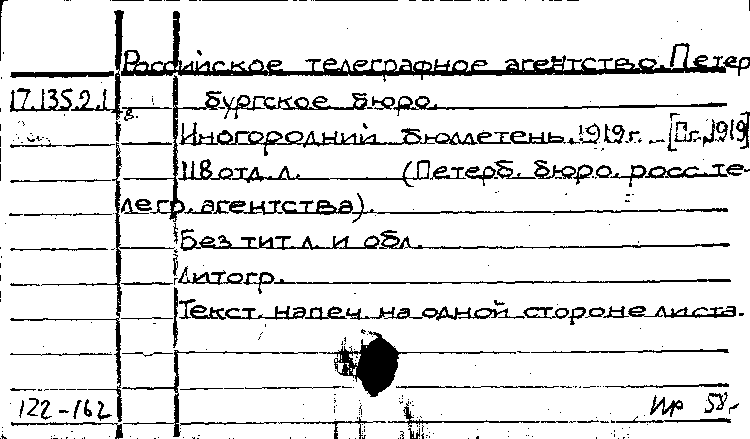 Российское телеграфное агентство. Петер
17.135.2.1 бургское бюро.
в.
Иногородний бюллетень. 1919 г. [Пг., 1919]
118 отд. л. (Петерб. бюро. росс. те-
легр. агентства).
Без тит. л. и обл.
Литогр.
Текст. напеч. на одной стороне листа.
122-162 58-